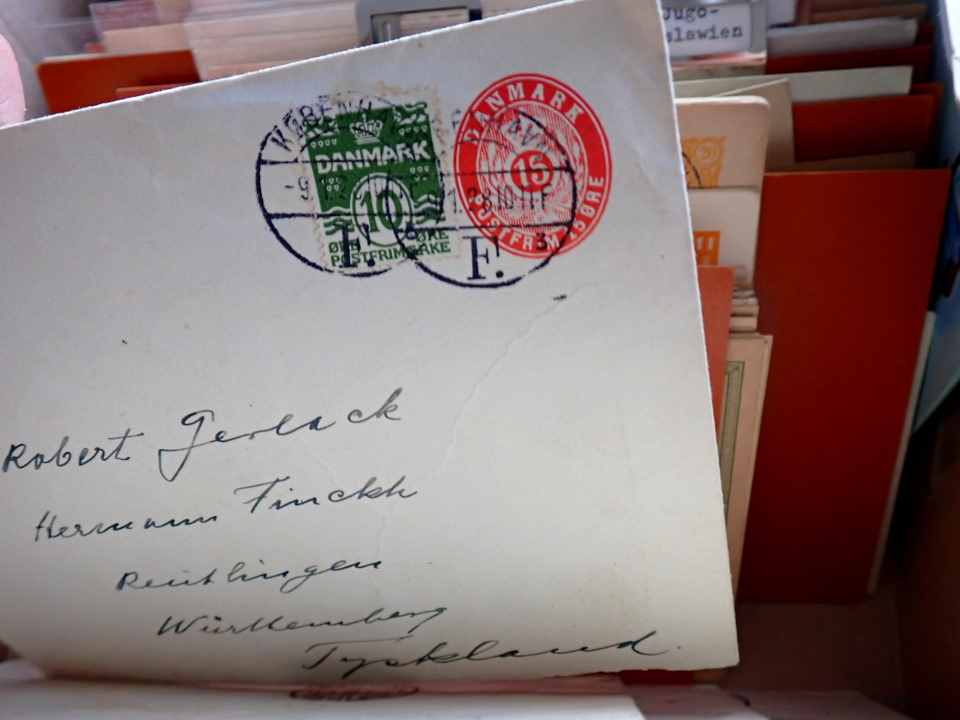 Jugo-
slawien
KØBENH
DANMARK
10
ØRE ØRE
POSTFRIMÆRKE
F.
DANMARK
15
POSTFRIM. 15 ØRE
F.
3.
Robert Gerlack
Hermann Finckh
Reutlingen
Württemberg
Tyskland.